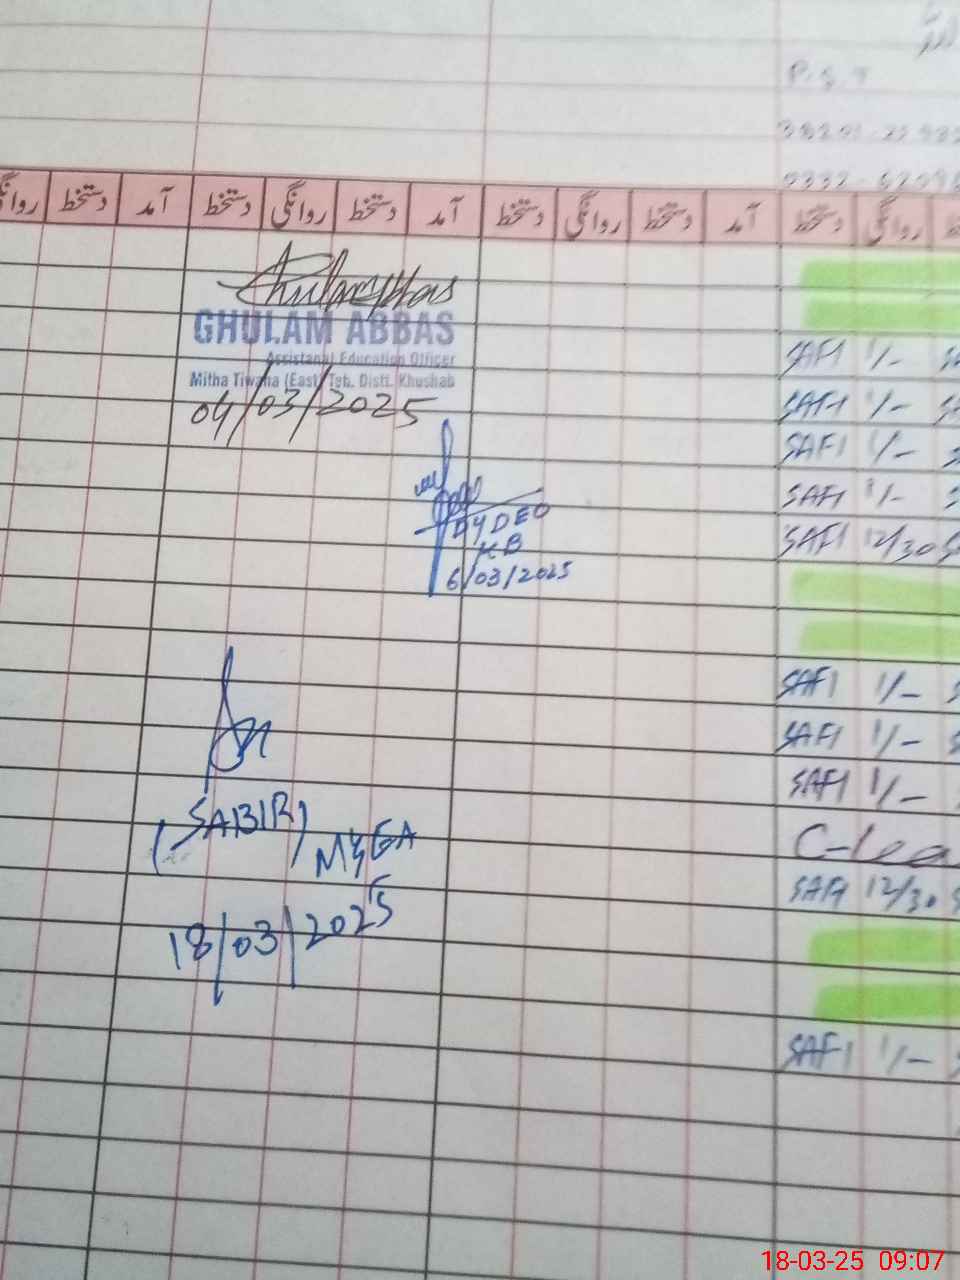 P.S.T
روانگی دستخط آمد دستخط روانگی دستخط آمد دستخط روانگی دستخط آمد دستخط روانگی
GHULAM ABBAS
Assistant Education Officer
Mitha Tiwana (East) Teh. Distt. Khushab
04/03/2025
SAFI 1/-
SAFI 1/-
SAFI 1/-
SAFI 1/-
SAFI 12/30
DY DEO
KB
6/03/2025
SAFI 1/-
SAFI 1/-
SAFI 1/-
(SABIR) M&EA
C-Lea
SAFI 12/30
18/03/2025
SAFI 1/-
18-03-25 09:07